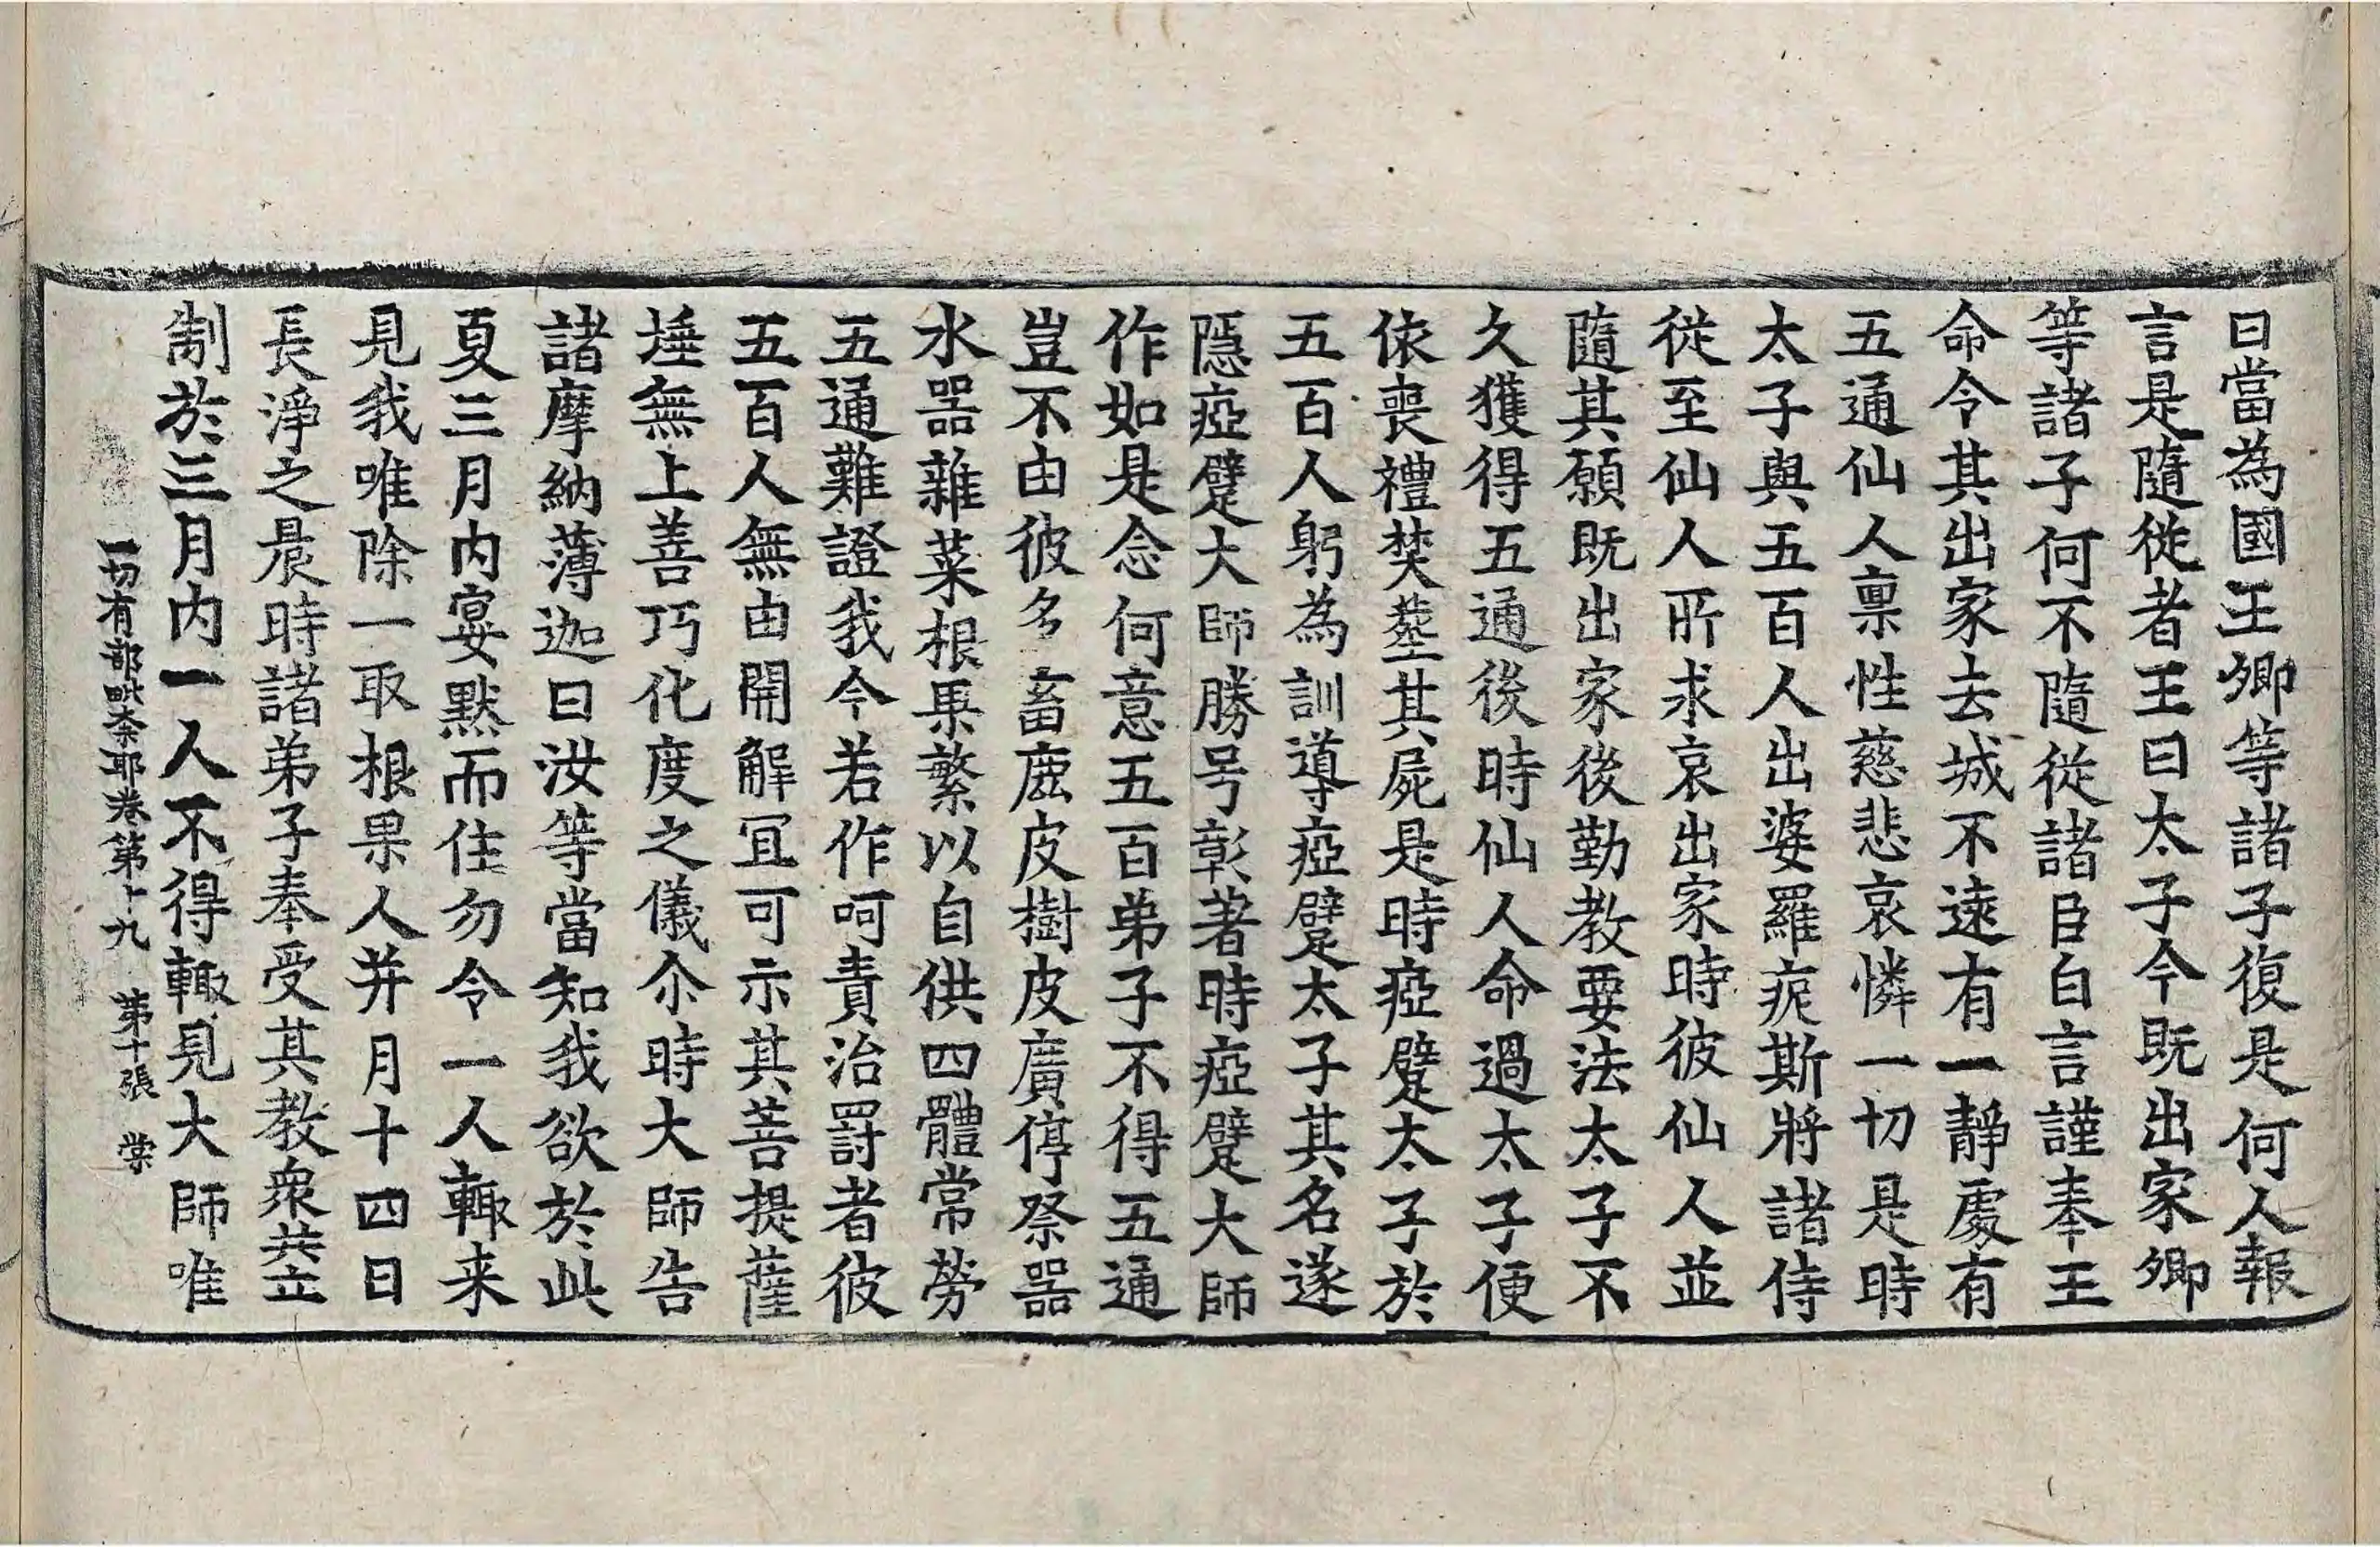 曰當為國王卿等諸子復是何人報
言是隨從者王曰太子今既出家卿
等諸子何不隨從諸臣白言謹奉王
命令其出家去城不遠有一靜處有
五通仙人稟性慈悲哀憐一切是時
太子與五百人出婆羅痆斯將諸侍
從至仙人所求哀出家時彼仙人並
隨其願既出家後勤教要法太子不
久獲得五通後時仙人命過太子便
依喪禮焚葬其屍是時瘂躄太子於
五百人躬為訓導瘂躄太子其名遂
隱瘂躄大師勝号彰著時瘂躄大師
作如是念何意五百弟子不得五通
豈不由彼多畜鹿皮樹皮廣停祭器
水器雜菜根果繁以自供四體常勞
五通難證我今若作呵責治罸者彼
五百人無由開解冝可示其菩提薩
埵無上善巧化度之儀尒時大師告
諸摩納薄迦曰汝等當知我欲於此
夏三月内宴默而住勿令一人輙来
見我唯除一取根果人并月十四日
長淨之晨時諸弟子奉受其教衆共立
制於三月内一人不得輙見大師唯
一切有部毗柰耶卷第十九　第十張　棠